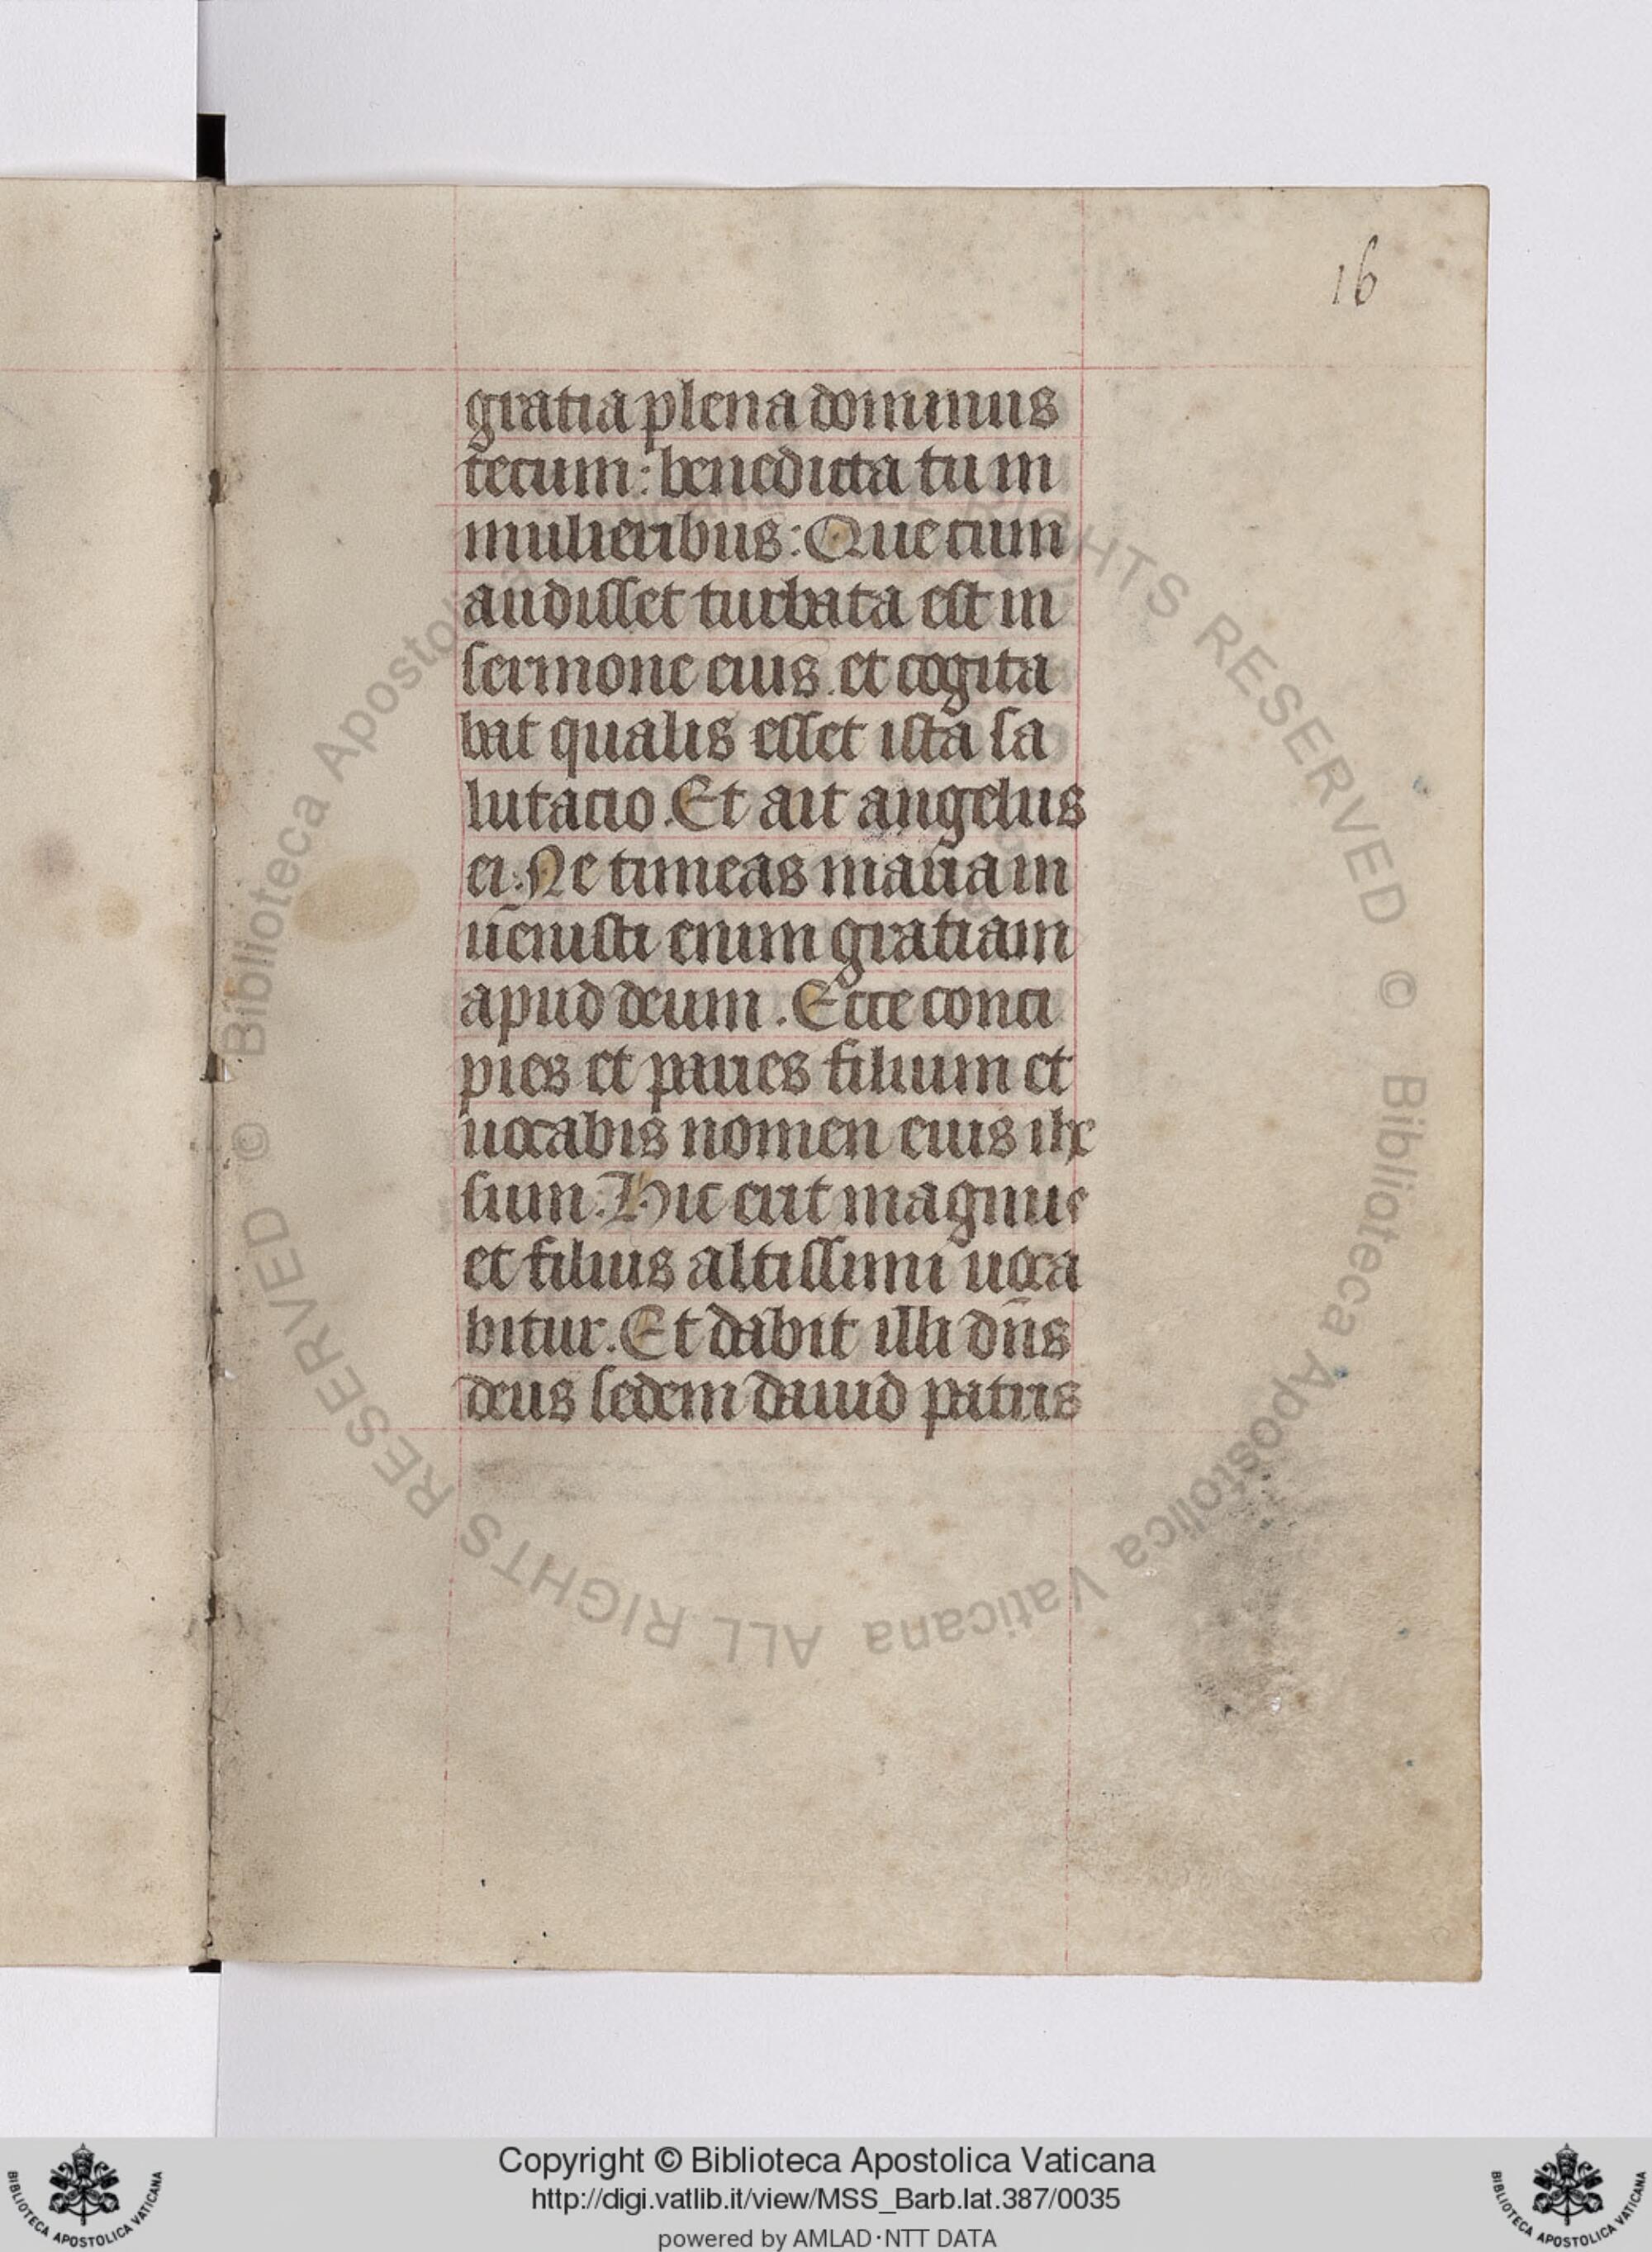 16
gratia plena dominus
tecum: benedicta tu in
mulieribus: Que cum
audisset turbata est in
sermone eius. et cogita
bat qualis esset ista sa
lutacio. Et ait angelus
ei. Ne timeas maria in
uenisti enim gratiam
apud deum. Ecce conci
pies et paries filium et
uocabis nomen eius ihe
sum. Hic erit magnus
et filius altissimi uoca
bitur. Et dabit illi dn̄s
deus sedem dauid patris
© Biblioteca Apostolica Vaticana ALL RIGHTS RESERVED
© Biblioteca Apostolica Vaticana ALL RIGHTS RESERVED
Copyright © Biblioteca Apostolica Vaticana
http://digi.vatlib.it/view/MSS_Barb.lat.387/0035
powered by AMLAD·NTT DATA
BIBLIOTECA APOSTOLICA VATICANA
BIBLIOTECA APOSTOLICA VATICANA